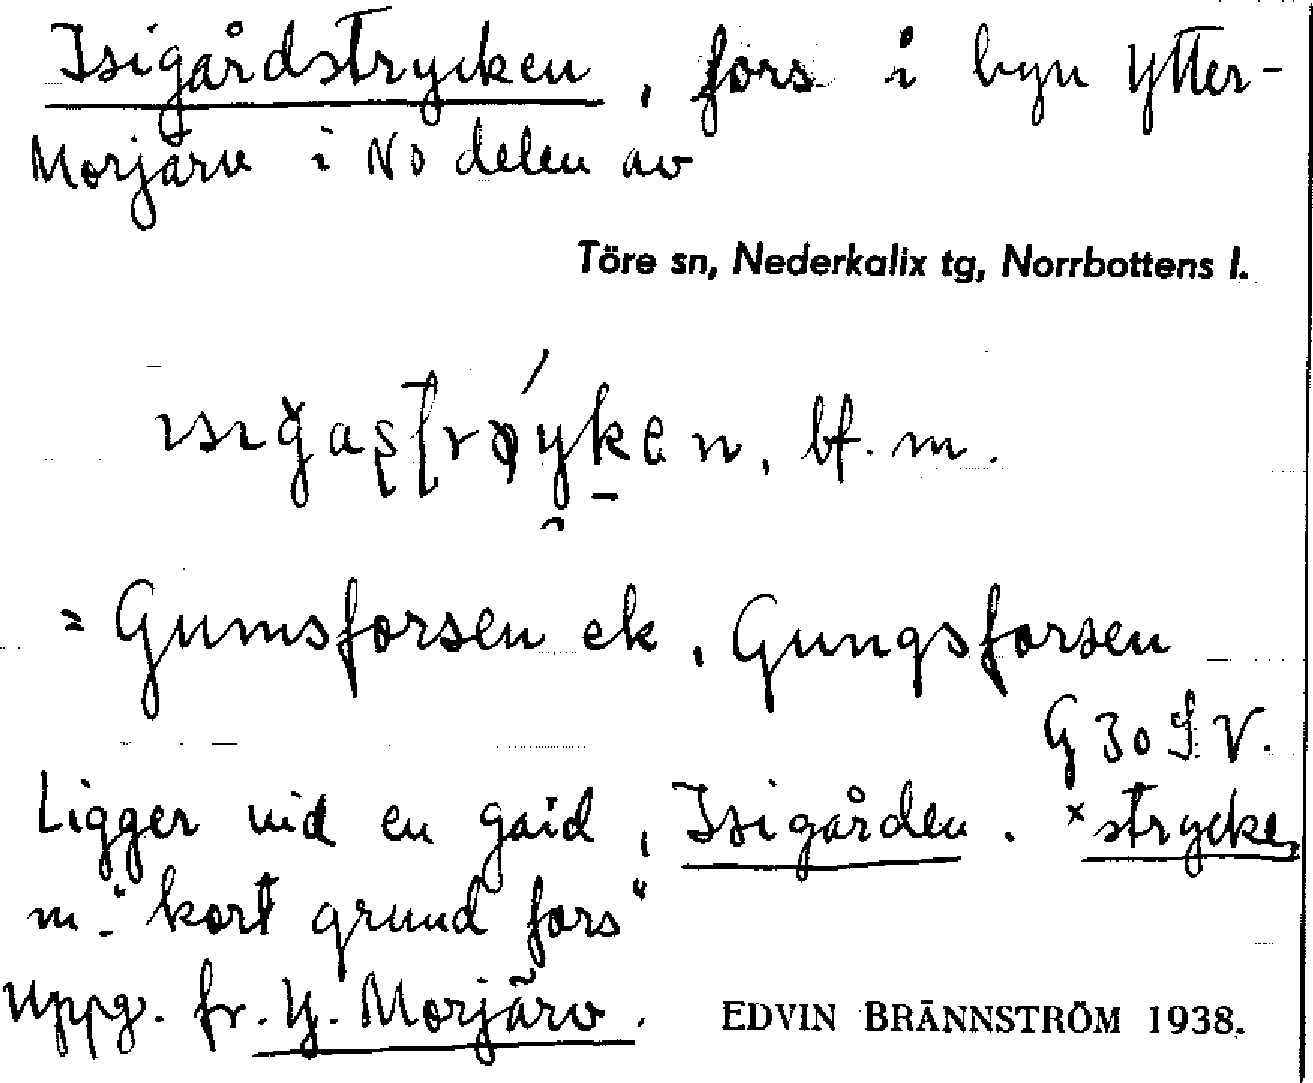 Isigårdstrycken, fors i byn Ytter-
Morjärv i NO delen av
Töre sn, Nederkalix tg, Norrbottens l.
bf. m.
= Gumsforsen ek, Gungsforsen
G 30 S V.
Ligger vid en gård, Isigården. ˣstrycke,
m. "kort grund fors"
Uppg. fr. Y. Morjärv.
EDVIN BRÄNNSTRÖM 1938.